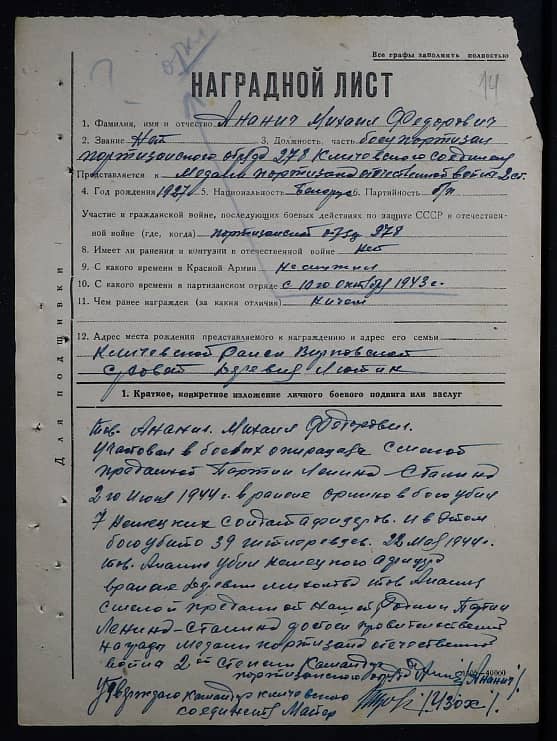 Все графы заполнять полностью
14
НАГРАДНОЙ ЛИСТ
1. Фамилия, имя и отчество Ананич Михаил Федорович
2. Звание Нет 3. Должность, часть боец партизан
партизанского отряда 278 Кличевского соединения
Представляется к Медали партизана отечественной войны 2 ст.
4. Год рождения 1927 5. Национальность Белорус 6. Партийность б/п
Участие в гражданской войне, последующих боевых действиях по защите СССР и отечествен-
ной войне (где, когда) партизанский 278
8. Имеет ли ранения и контузии в отечественной войне Нет
9. С какого времени в Красной Армии не служил
10. С какого времени в партизанском отряде с 10го октября 1943 г.
11. Чем ранее награжден (за какия отличия) Ничем
12. Адрес места рождения представляемого к награждению и адрес его семьи
Кличевской
деревня
Для подшивки
1. Краткое, конкретное изложение личного боевого подвига или заслуг
Тов. Ананич Михаил Федорович
Участвовал в боевых смелой
преданной Партии Ленина-Сталина
2го Июня 1944 г. в районе в бою убил
7 Немецких солдат и в этом
бою убито 39 гитлеревцев. 22 мая 1944 г.
тов. Ананич убил немецкого
в районе деревни тов Ананич
смелой преданной нашей Родине Партии
Ленина-Сталина достоин правительственной
награды Медали партизана отечественной
война 2ой степени Командир
партизанского отряда /Ананич/.
Утверждаю Командир Кличевского
соединения Майор /Изох/.